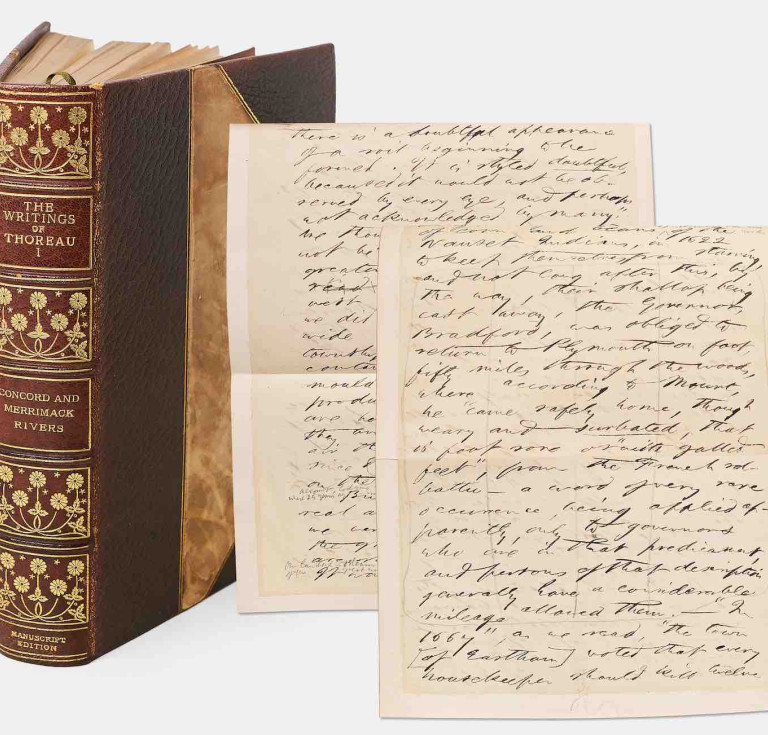 THE
WRITINGS
OF
THOREAU
I
CONCORD AND
MERRIMACK
RIVERS
MANUSCRIPT
EDITION
there is a doubtful appearance
of a soil beginning to be
formed. It is styled doubtful,
because it would not be ob-
served by every eye, and perhaps
not acknowledged by many."
We thou
not be
greater
west
we did
wide
township
contai
would
produ
are ho
the
air th
on the
real a
we wer
the gr
of corn and beans of the
Nauset Indians, in 1622
to keep themselves from starving,
and not long after this, by
the way, their shallop being
cast away, the Governor,
Bradford, was obliged to
return to Plymouth on foot,
fifty miles through the woods,
where according to Mount,
he "came safely home, though
weary and surbated, that
is foot sore or with galled
feet", from the French sol-
battu — a word of very rare
occurrence, being applied ap-
parently, only to governors
who are in that predicament
and persons of that description
generally have a considerable
mileage allowed them. — "In
1667", as we read, "the town
[of Eastham] voted that every
housekeeper should kill twelve